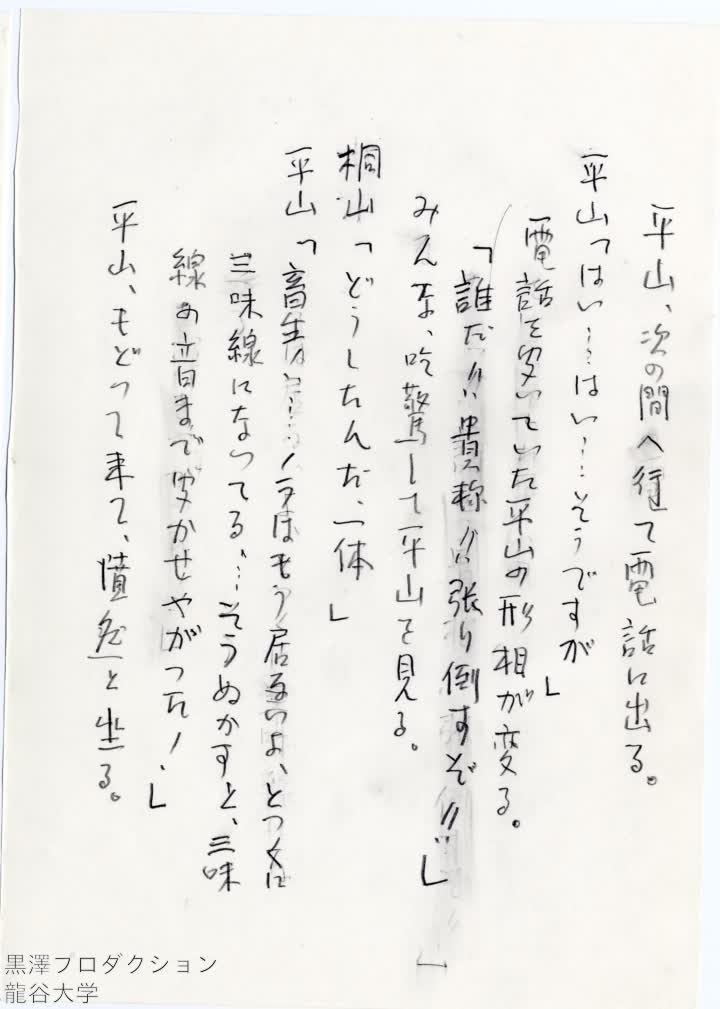 平山、次の間へ行って電話に出る。
平山「はい……はい……そうですが」
電話を聞いていた平山の形相が変る。
「誰だ!! 貴様!! 張り倒すぞ!!」
みんな、吃驚して平山を見る。
桐山「どうしたんだ、一体」
平山「畜生……! 今はもう居ないよ、とっくに
三味線になってる……そうぬかすと、三味
線の音まで聞かせやがった!」
平山、もどって来て、憤然と坐る。
黒澤プロダクション
龍谷大学